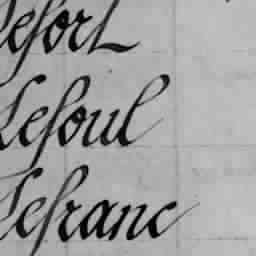 Lefort
Lefoul
Lefranc